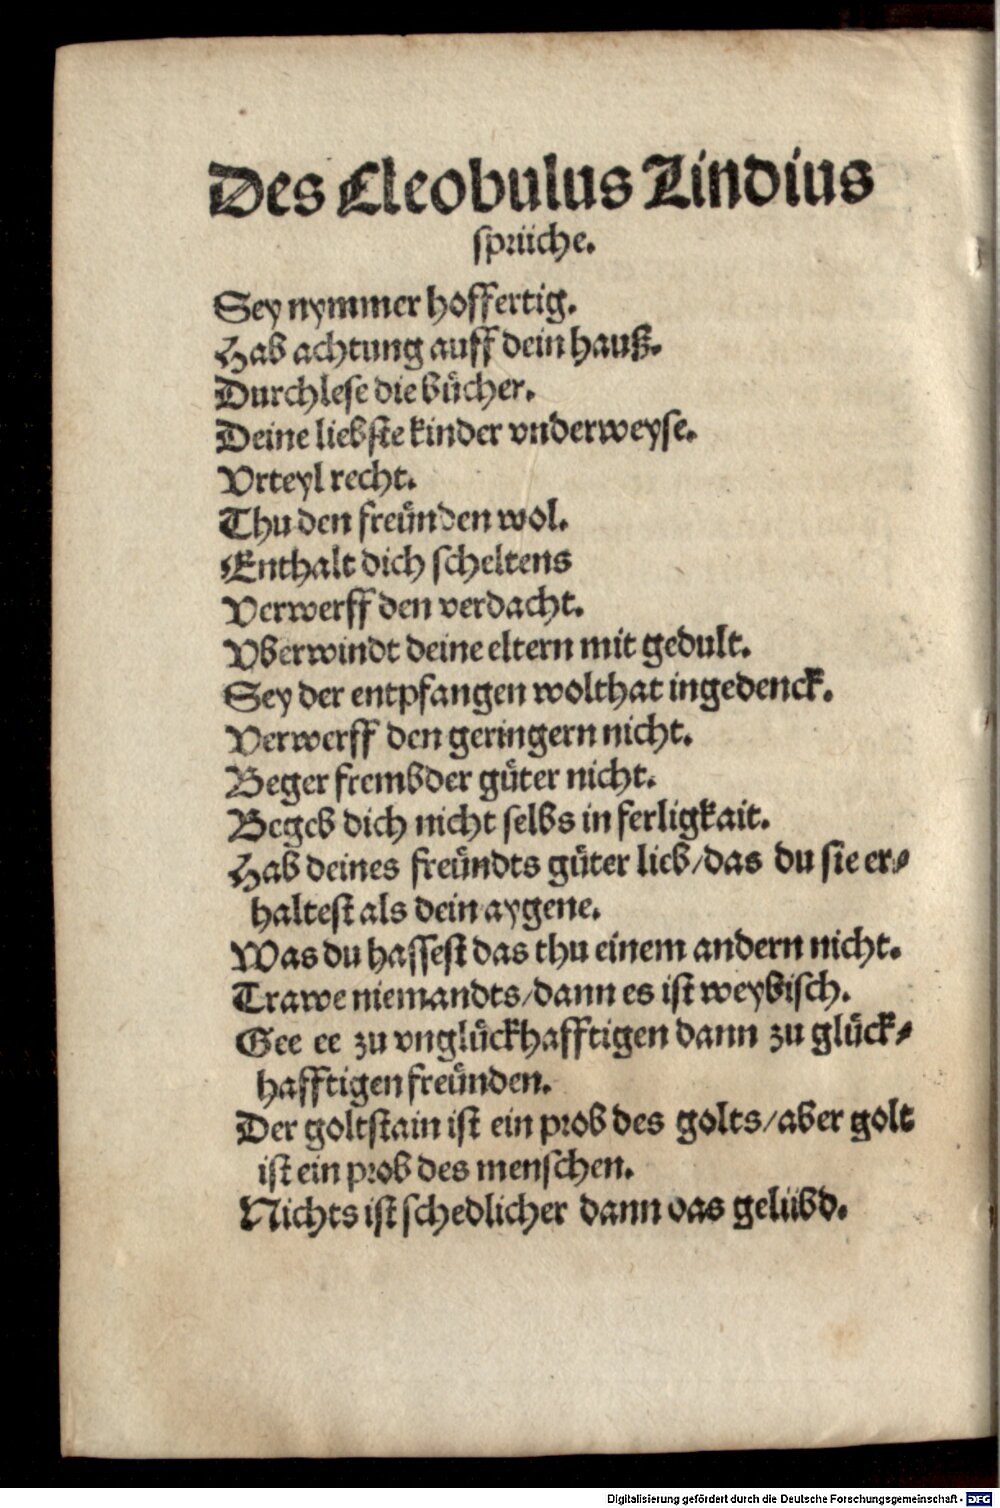 Des Cleobulus Lindius
sprüche.
Sey nymmer hoffertig.
Hab achtung auff dein hauß.
Durchlese die bücher.
Deine liebste kinder vnderweyse.
Vrteyl recht.
Thu den freünden wol.
Enthalt dich scheltens
Verwerff den verdacht.
Vberwindt deine eltern mit gedult.
Sey der entpfangen wolthat ingedenck.
Verwerff den geringern nicht.
Beger frembder güter nicht.
Begeb dich nicht selbs in ferligkait.
Hab deines freündts güter lieb/das du sie er⸗
haltest als dein aygene.
Was du hassest das thu einem andern nicht.
Trawe niemandts/dann es ist weybisch.
Gee ee zu vnglückhafftigen dann zu glück⸗
hafftigen freünden.
Der goltstain ist ein prob des golts/aber golt
ist ein prob des menschen.
Nichts ist schedlicher dann das gelübd.
Digitalisierung gefördert durch die Deutsche Forschungsgemeinschaft - DFG